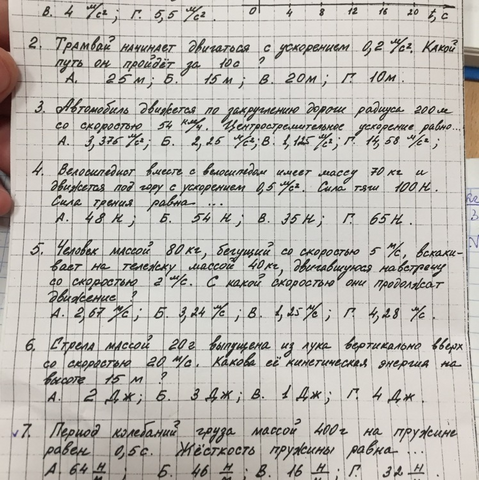 В. 4 м/с²; Г. 5,5 м/с². 0 4 8 12 16 20 t, с
2. Трамвай начинает двигаться с ускорением 0,2 м/с². Какой
путь он пройдёт за 10с ?
А. 25 м; Б. 15 м; В. 20 м; Г. 10 м.
3. Автомобиль движется по закруглению дороги радиуса 200м
со скоростью 54 км/ч. Центростремительное ускорение равно...
А. 3,375 м/с²; Б. 2,25 м/с²; В. 1,125 м/с²; Г. 14,58 м/с²;
4. Велосипедист вместе с велосипедом имеет массу 70 кг и
движется под гору с ускорением 0,5 м/с². Сила тяги 100 Н.
Сила трения равна ...
А. 48 Н; Б. 54 Н; В. 35 Н; Г. 65 Н.
5. Человек массой 80 кг, бегущий со скоростью 5 м/с, вскаки-
вает на тележку массой 40 кг, двигавшуюся навстречу
со скоростью 2 м/с. С какой скоростью они продолжат
движение ?
А. 2,67 м/с; Б. 3,24 м/с; В. 1,25 м/с; Г. 4,28 м/с.
6. Стрела массой 20 г выпущена из лука вертикально вверх
со скоростью 20 м/с. Какова её кинетическая энергия на
высоте 15 м ?
А. 2 Дж; Б. 3 Дж; В. 1 Дж; Г. 4 Дж.
7. Период колебаний груза массой 400 г на пружине
равен 0,5 с. Жёсткость пружины равна ...
А. 64 Н/м; Б. 46 Н/м; В. 16 Н/м; Г. 32 Н/м